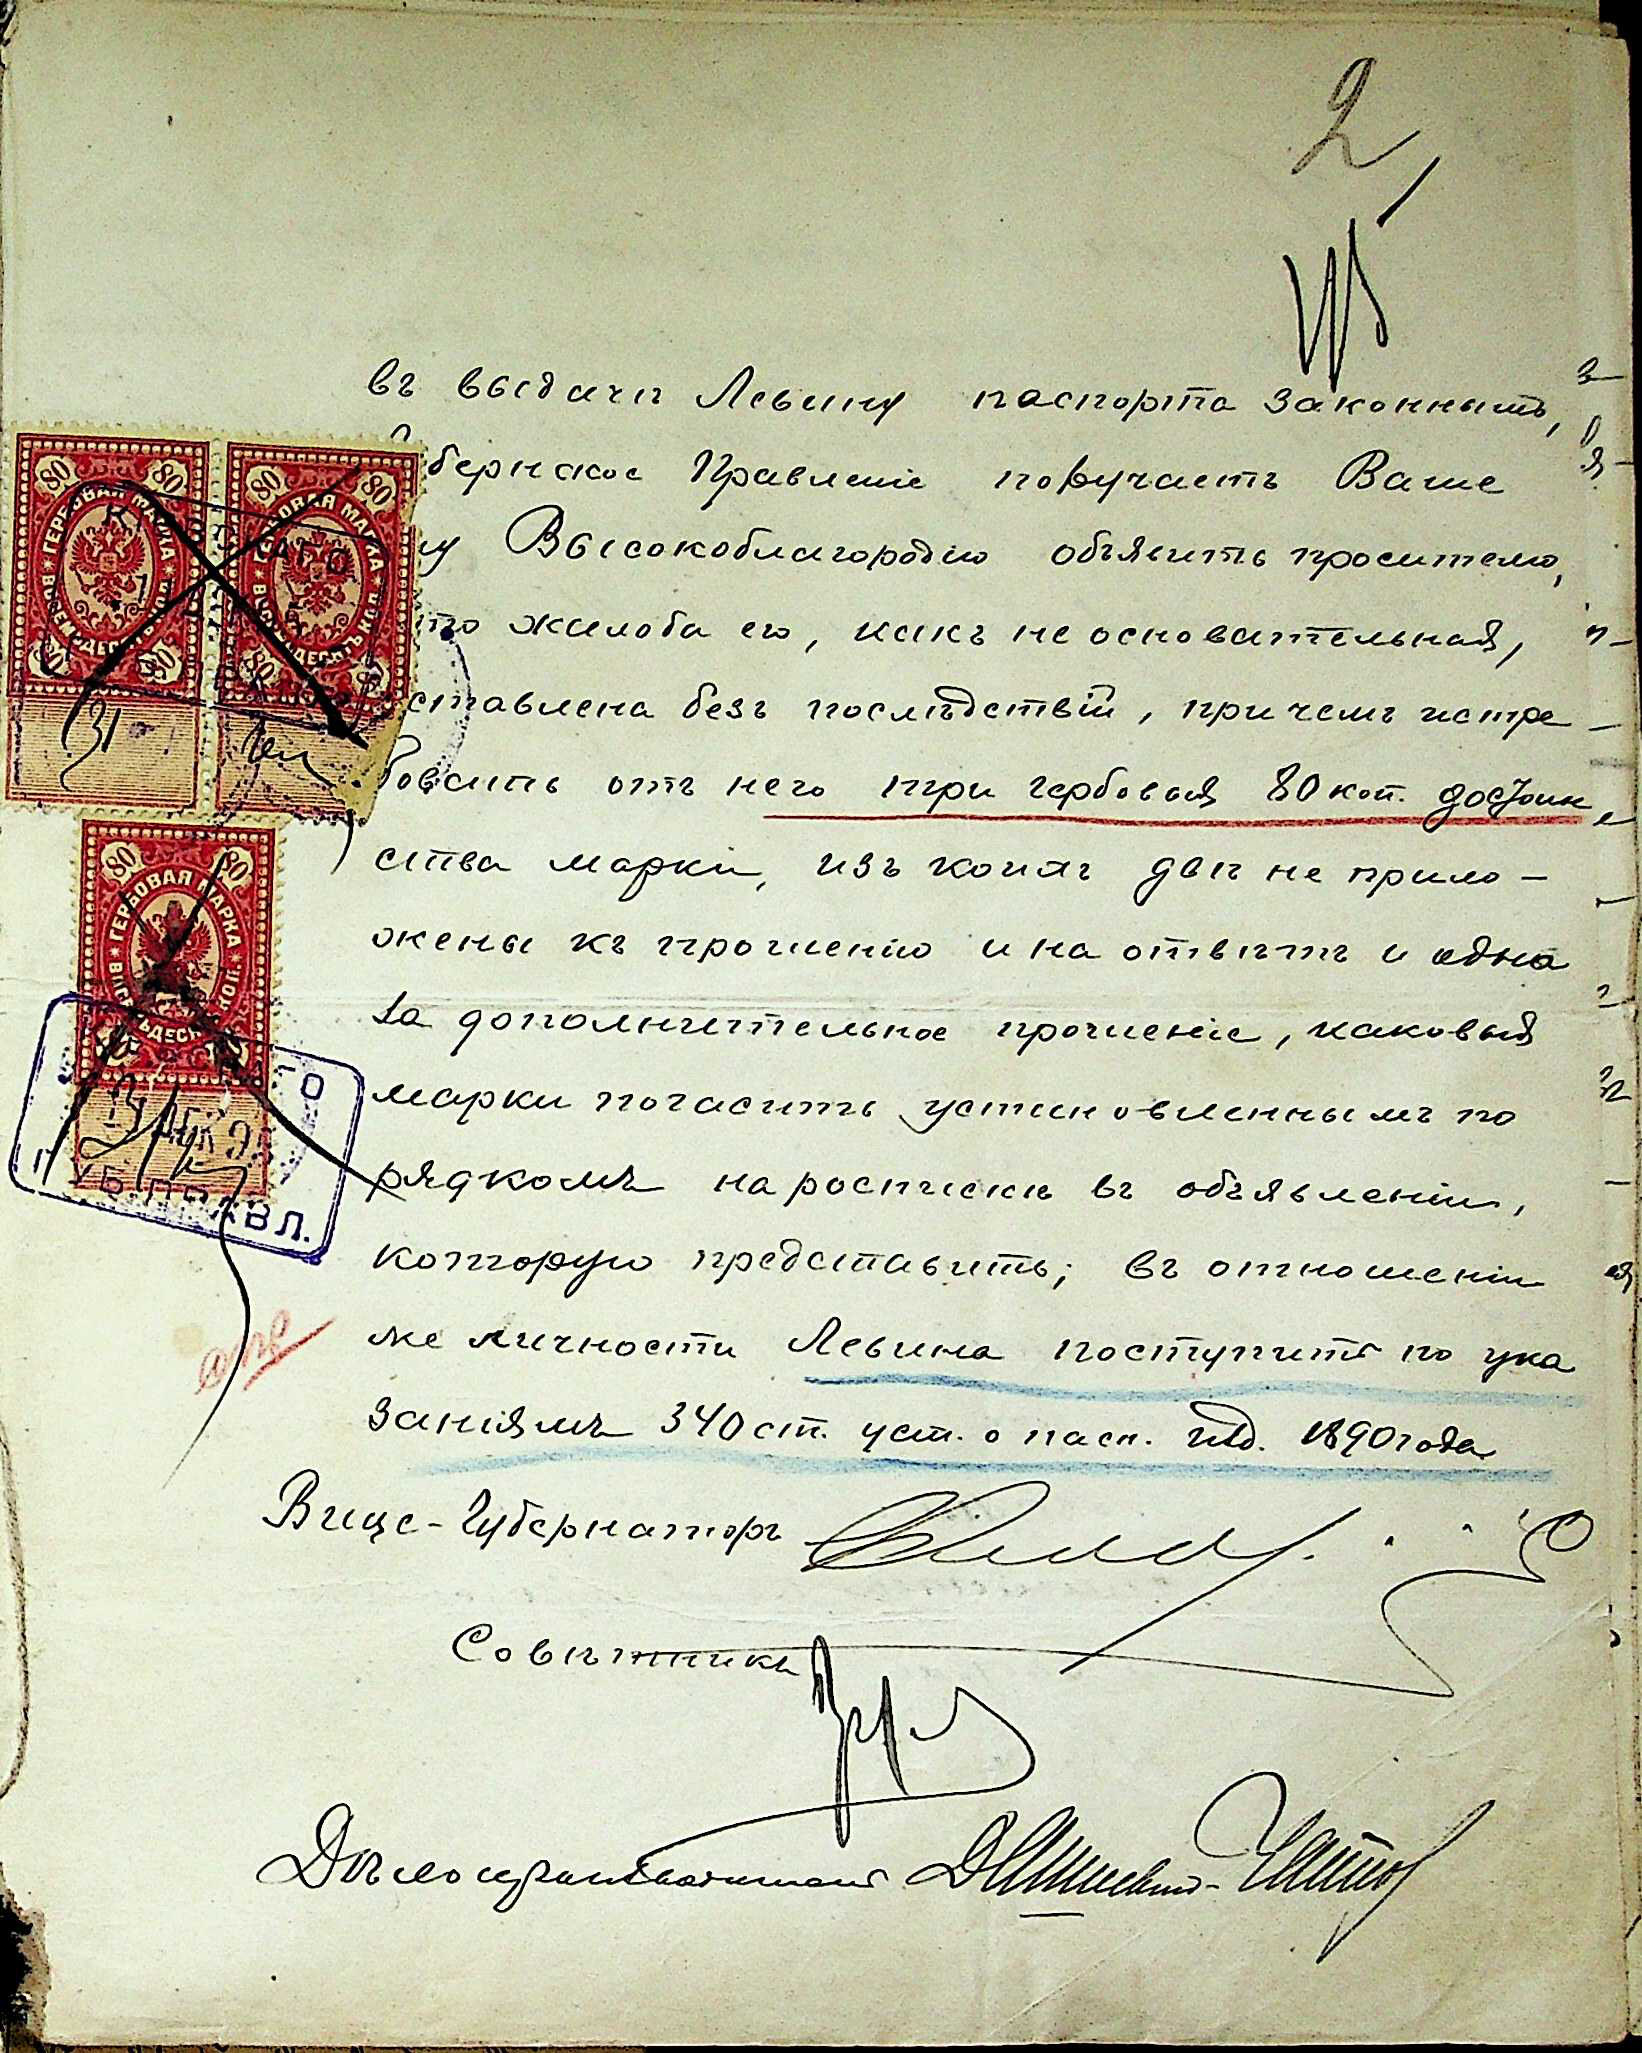 2
въ выдачѣ Левину паспорта законнымъ,
бернское Правленіе поручаетъ Ваше
му Высокоблагородію объявить просителю,
что жалоба его, какъ не основательная,
оставлена безъ послѣдствій, при чемъ истре
бовать отъ него три гербовыя 80 коп. достоин
ства марки, изъ коихъ двѣ не прило-
жены къ прошенію и на отвѣтъ и одна
за дополнительное прошеніе, каковыя
марки погасить установленнымъ по
рядкомъ на роспискѣ въ объявленіи,
которую представить; въ отношеніи
же личности Левина поступить по ука
заніямъ 340 ст. уст. о пасп. изд. 1890 года
Вице-Губернаторъ
Совѣтникъ
Дѣлопроизводитель
80 80
ГЕРБОВАЯ МАРКА
ВОСЕМЬДЕСЯТЪ КОП.
80 80
80 80
ГЕРБОВАЯ МАРКА
ВОСЕМЬДЕСЯТЪ КОП.
80 80
80 80
ГЕРБОВАЯ МАРКА
ВОСЕМЬДЕСЯТЪ КОП.
ГУБ. ПРАВЛ.